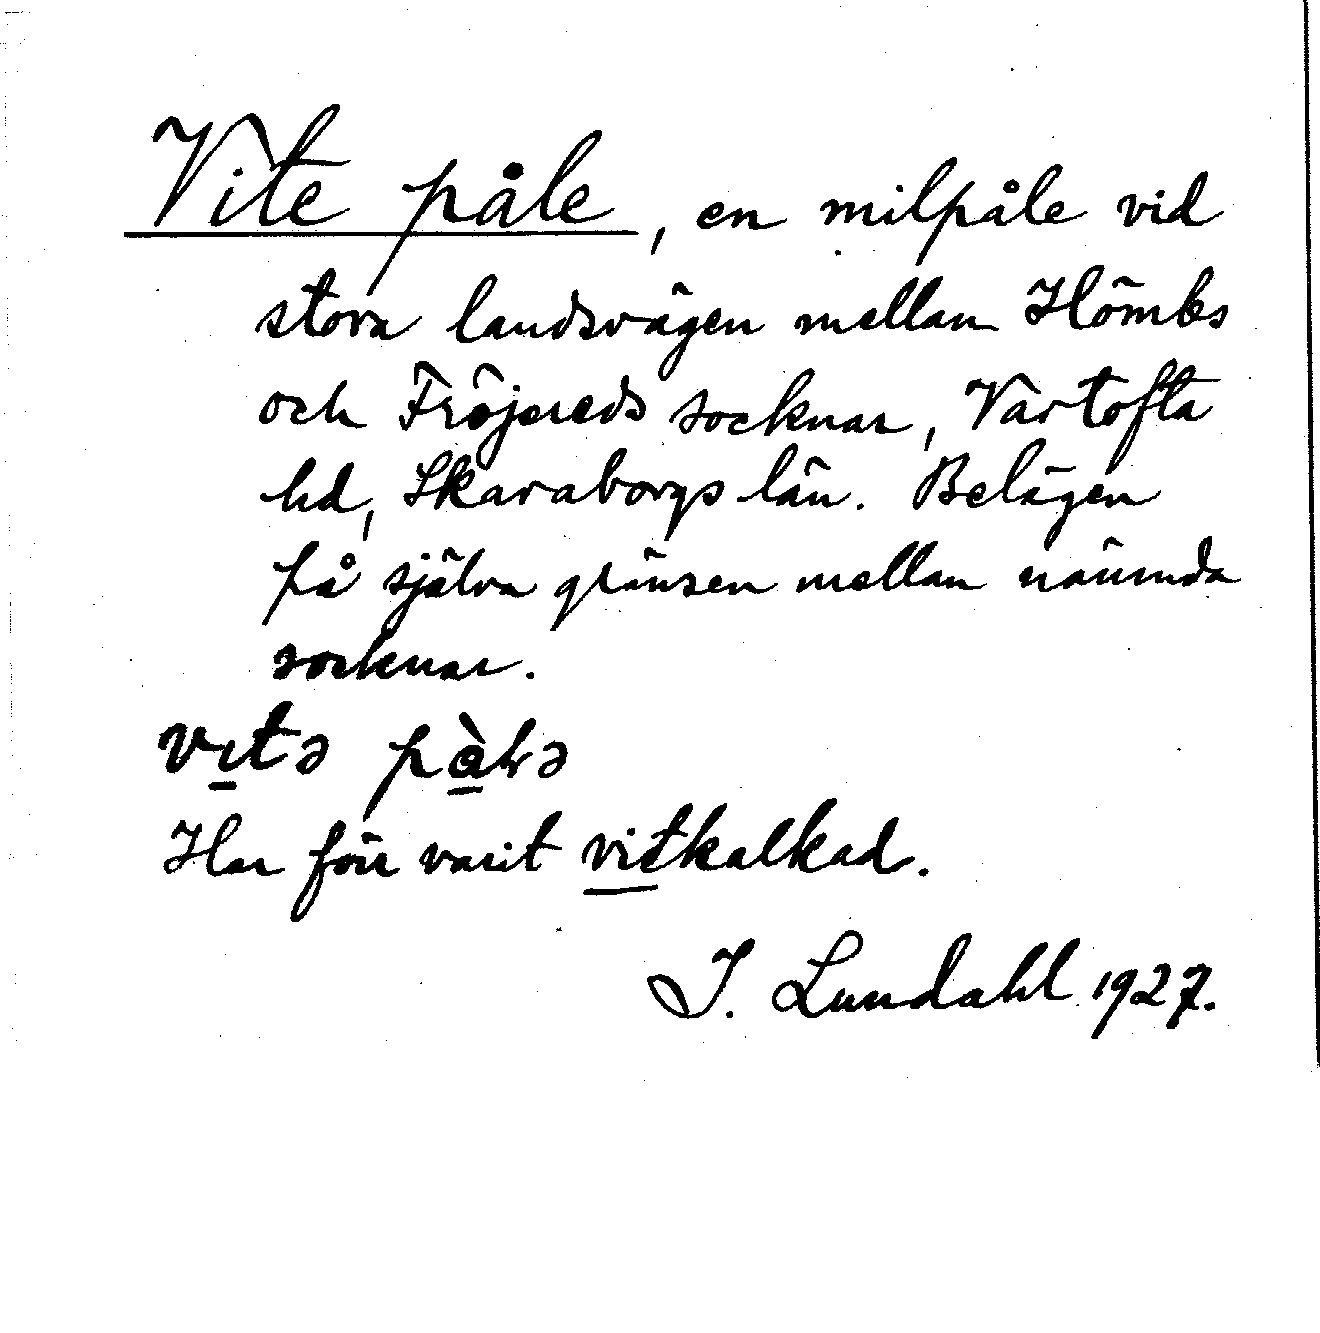 Vite påle, en milpåle vid
stora landsvägen mellan Hömbs
och Fröjereds socknar, Vartofta
hd, Skaraborgs län. Belägen
på själva gränsen mellan nämnda
socknar.
vıtə pàlə
Har förr varit vitkalkad.
I. Lundahl 1927.